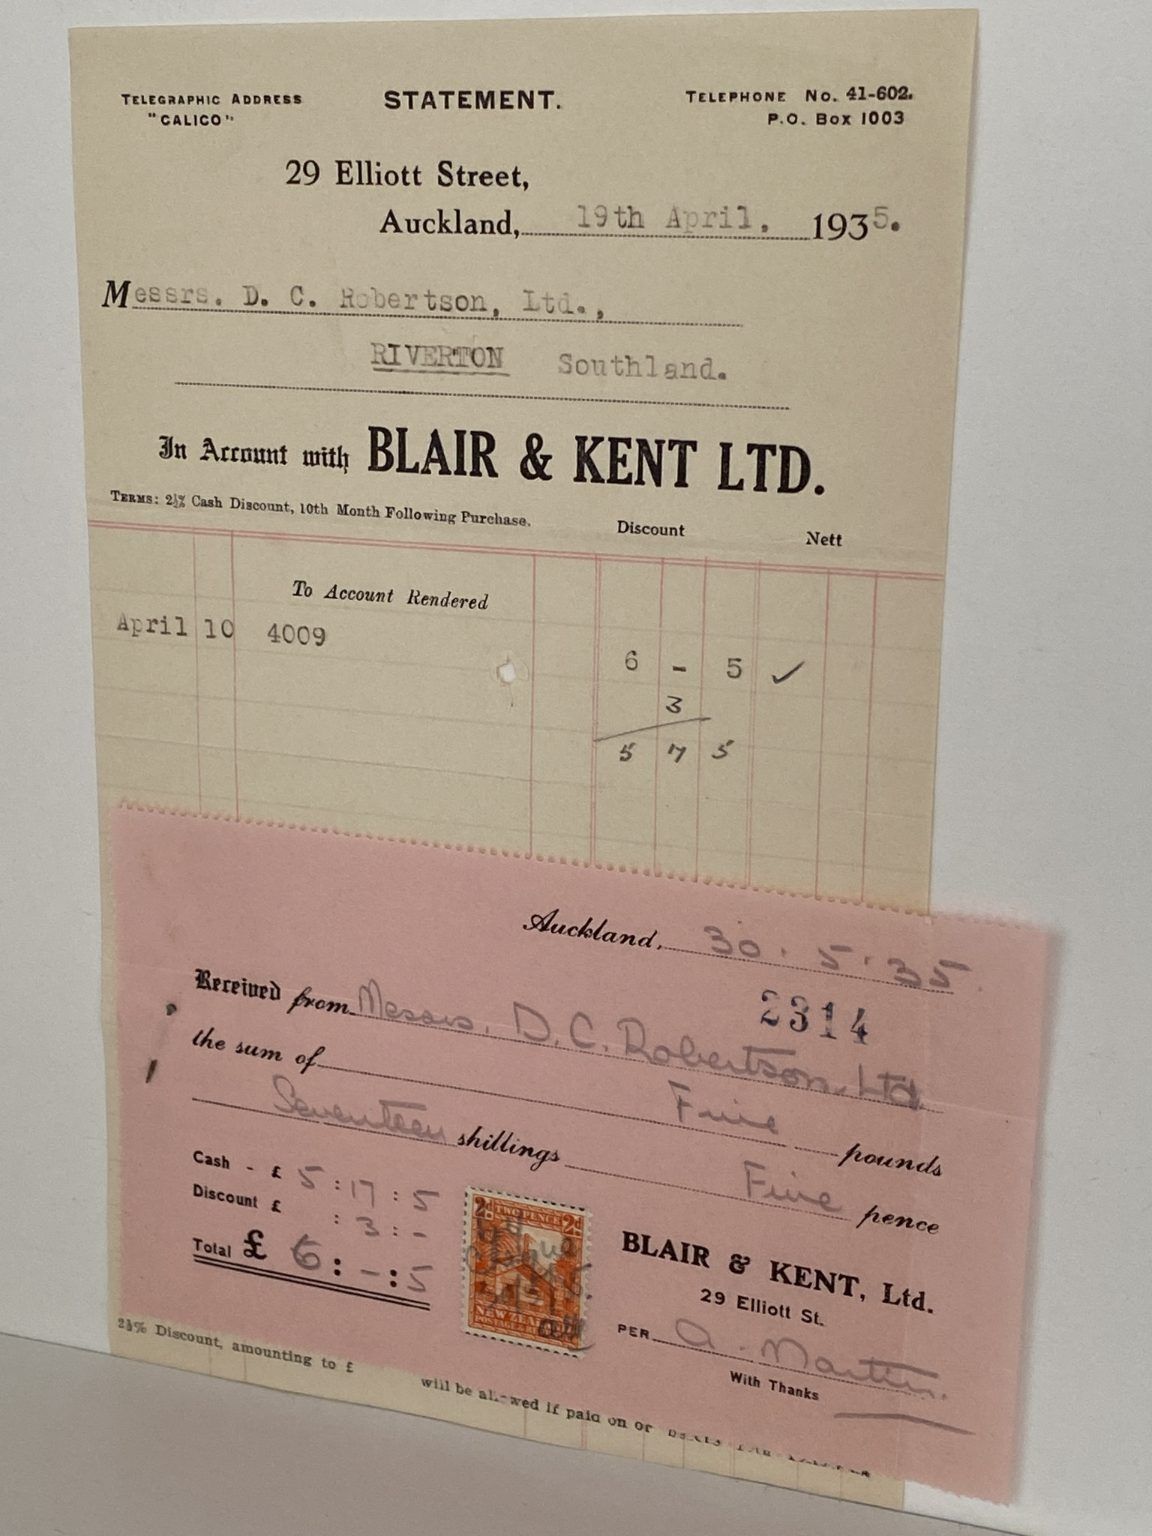 TELEGRAPHIC ADDRESS
"CALICO"
STATEMENT.
TELEPHONE No. 41-602.
P.O. Box 1003
29 Elliott Street,
Auckland, 19th April. 1935.
Messrs. D. C. Robertson, Ltd.,
RIVERTON Southland.
In Account with BLAIR & KENT LTD.
TERMS: 2½% Cash Discount, 10th Month Following Purchase.
Discount Nett
To Account Rendered
April 10 4009
6 - 5 ✓
3
5 17 5
Auckland, 30.5.35.
2314
Received from Messrs. D.C. Robertson, Ltd.
the sum of Five pounds
Seventeen shillings Five pence
Cash - £ 5 : 17 : 5
Discount £ : 3 : -
Total £ 6 : - : 5
2d TWO PENCE 2d
NEW ZEALAND
POSTAGE & REVENUE
BLAIR & KENT, Ltd.
29 Elliott St.
PER A. Martin.
With Thanks
2½% Discount, amounting to £ will be allowed if paid on or